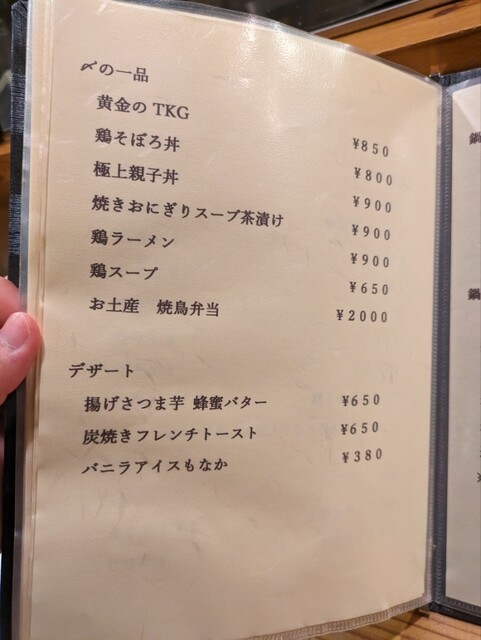 〆の一品
黄金の TKG ¥850
鶏そぼろ丼 ¥800
極上親子丼 ¥900
焼きおにぎりスープ茶漬け ¥900
鶏ラーメン ¥900
鶏スープ ¥650
お土産 焼鳥弁当 ¥2000
デザート
揚げさつま芋 蜂蜜バター ¥650
炭焼きフレンチトースト ¥650
バニラアイスもなか ¥380
鍋
鍋